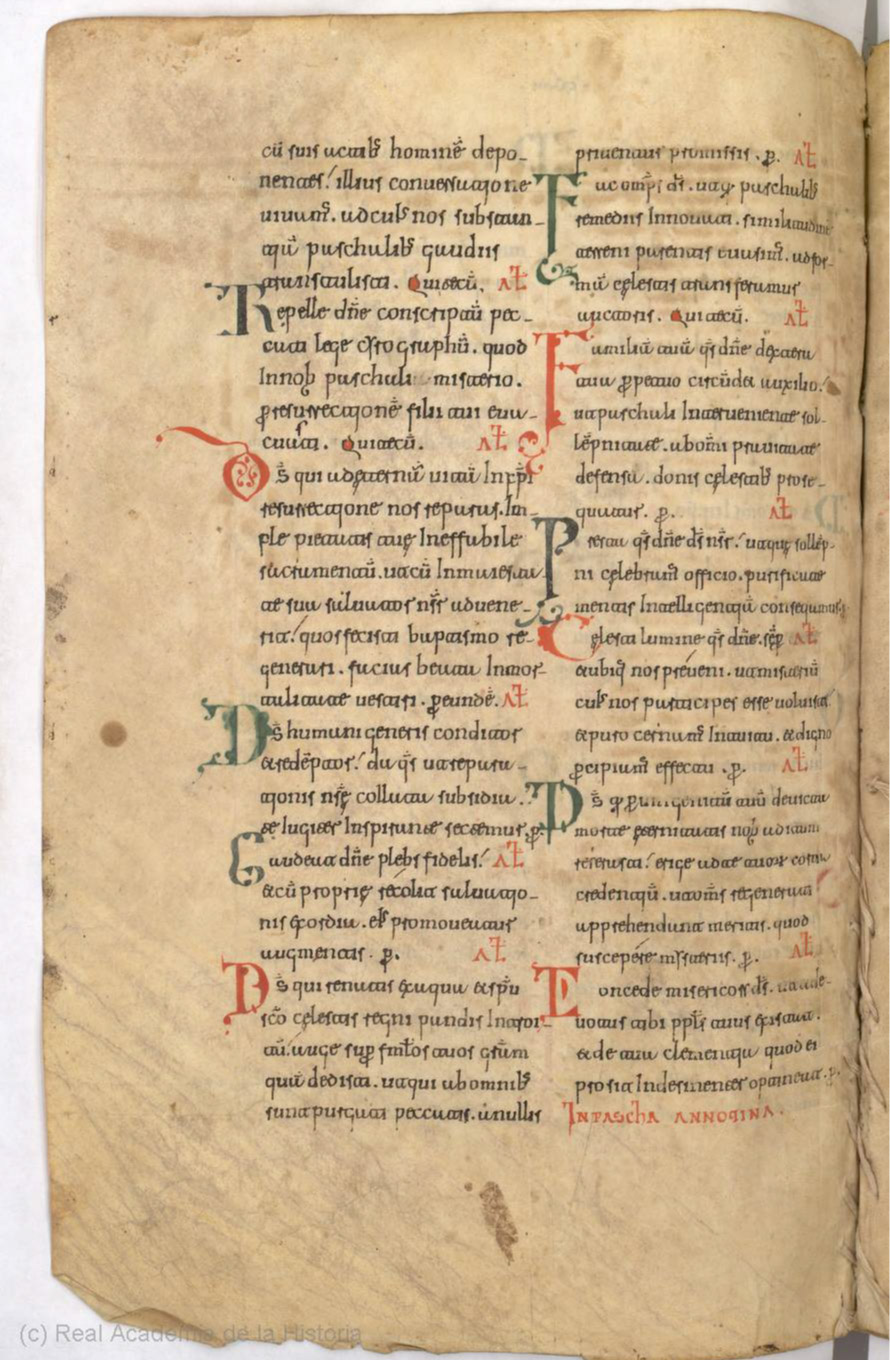 cū suis actib' hominē depo-
nentes. illius conuersatione
uiuam'. ad cui' nos substan-
tiā paschalib' gaudiis
transtulisti. Qui tecū. Alt
Repelle dñe conscriptū pec-
cati lege cyrographū. quod
In nob' paschali misterio.
ꝑ resurrectionē filii tui eua-
cuasti. Qui tecū. Alt
Ds qui ad ęternā uitā In xp̄i
resurrectione nos reparas. Im-
ple pietatis tuę Ineffabile
sacramentū. ut cū In maiesta-
te sua saluator nr̄ aduene-
rit. quos fecisti baptismo re-
generari. facias beata Inmor-
talitate uestiri. ꝑ eundē. Alt
Ds humani generis conditor
et redēptor. da qs ut repara-
tionis nrę collata subsidia.
te iugiter Inspirante sectemur. ꝑ.
Gaudeat dñe plebs fidelis. Alt
et cū proprię recolit saluatio-
nis exordia. ei' promoueatur
augmentis. ꝑ. Alt
Ds qui renatis ex aqua et sp̄u
sc̄o cęlestis regni pandis Introi-
tū. auge sup famlos tuos gr̄am
quā dedisti. ut qui ab omnib'
sunt purgati peccatis. nullis
priuentur promissis. ꝑ. Alt
Fac omps ds. ut q' paschalib'
remediis Innouati. similitudinē
terreni parentis euasim'. ad for-
mā cęlestis transferamur
auctoris. Qui tecū. Alt
Familiā tuā qs dñe dextera
tua ꝑpetuo circūdet auxilio.
ut paschali Interueniente sol-
lēpnitate. ab omi prauitate
defensa. donis cęlestib' prose-
quatur. ꝑ. Alt
Presta qs dñe ds nr̄. ut aquę sollēp-
ni celebram' officio. purificate
mentis Intelligentiā consequamur.
Cęlesti lumine qs dñe. sēꝑ Alt
et ubiq' nos preueni. ut misteriū
cui' nos participes esse uoluisti.
et puro cernam' Intuitu. et digno
ꝑcipiam' effectu. ꝑ. Alt
Ds q' ꝑ unigenitū tuū deuicta
morte ęternitatis nob' aditum
reserasti. erige ad te tuor' corda
credentiū. ut om̄s regenerati
apprehendant meritis. quod
suscepere misteriis. ꝑ. Alt
Concede misericors ds. ut
uotus tibi ppl's tuus existat.
et de tua clementia quod ei
prosit Indesinenter optineat. ꝑ.
IN PASCHA ANNOTINA.